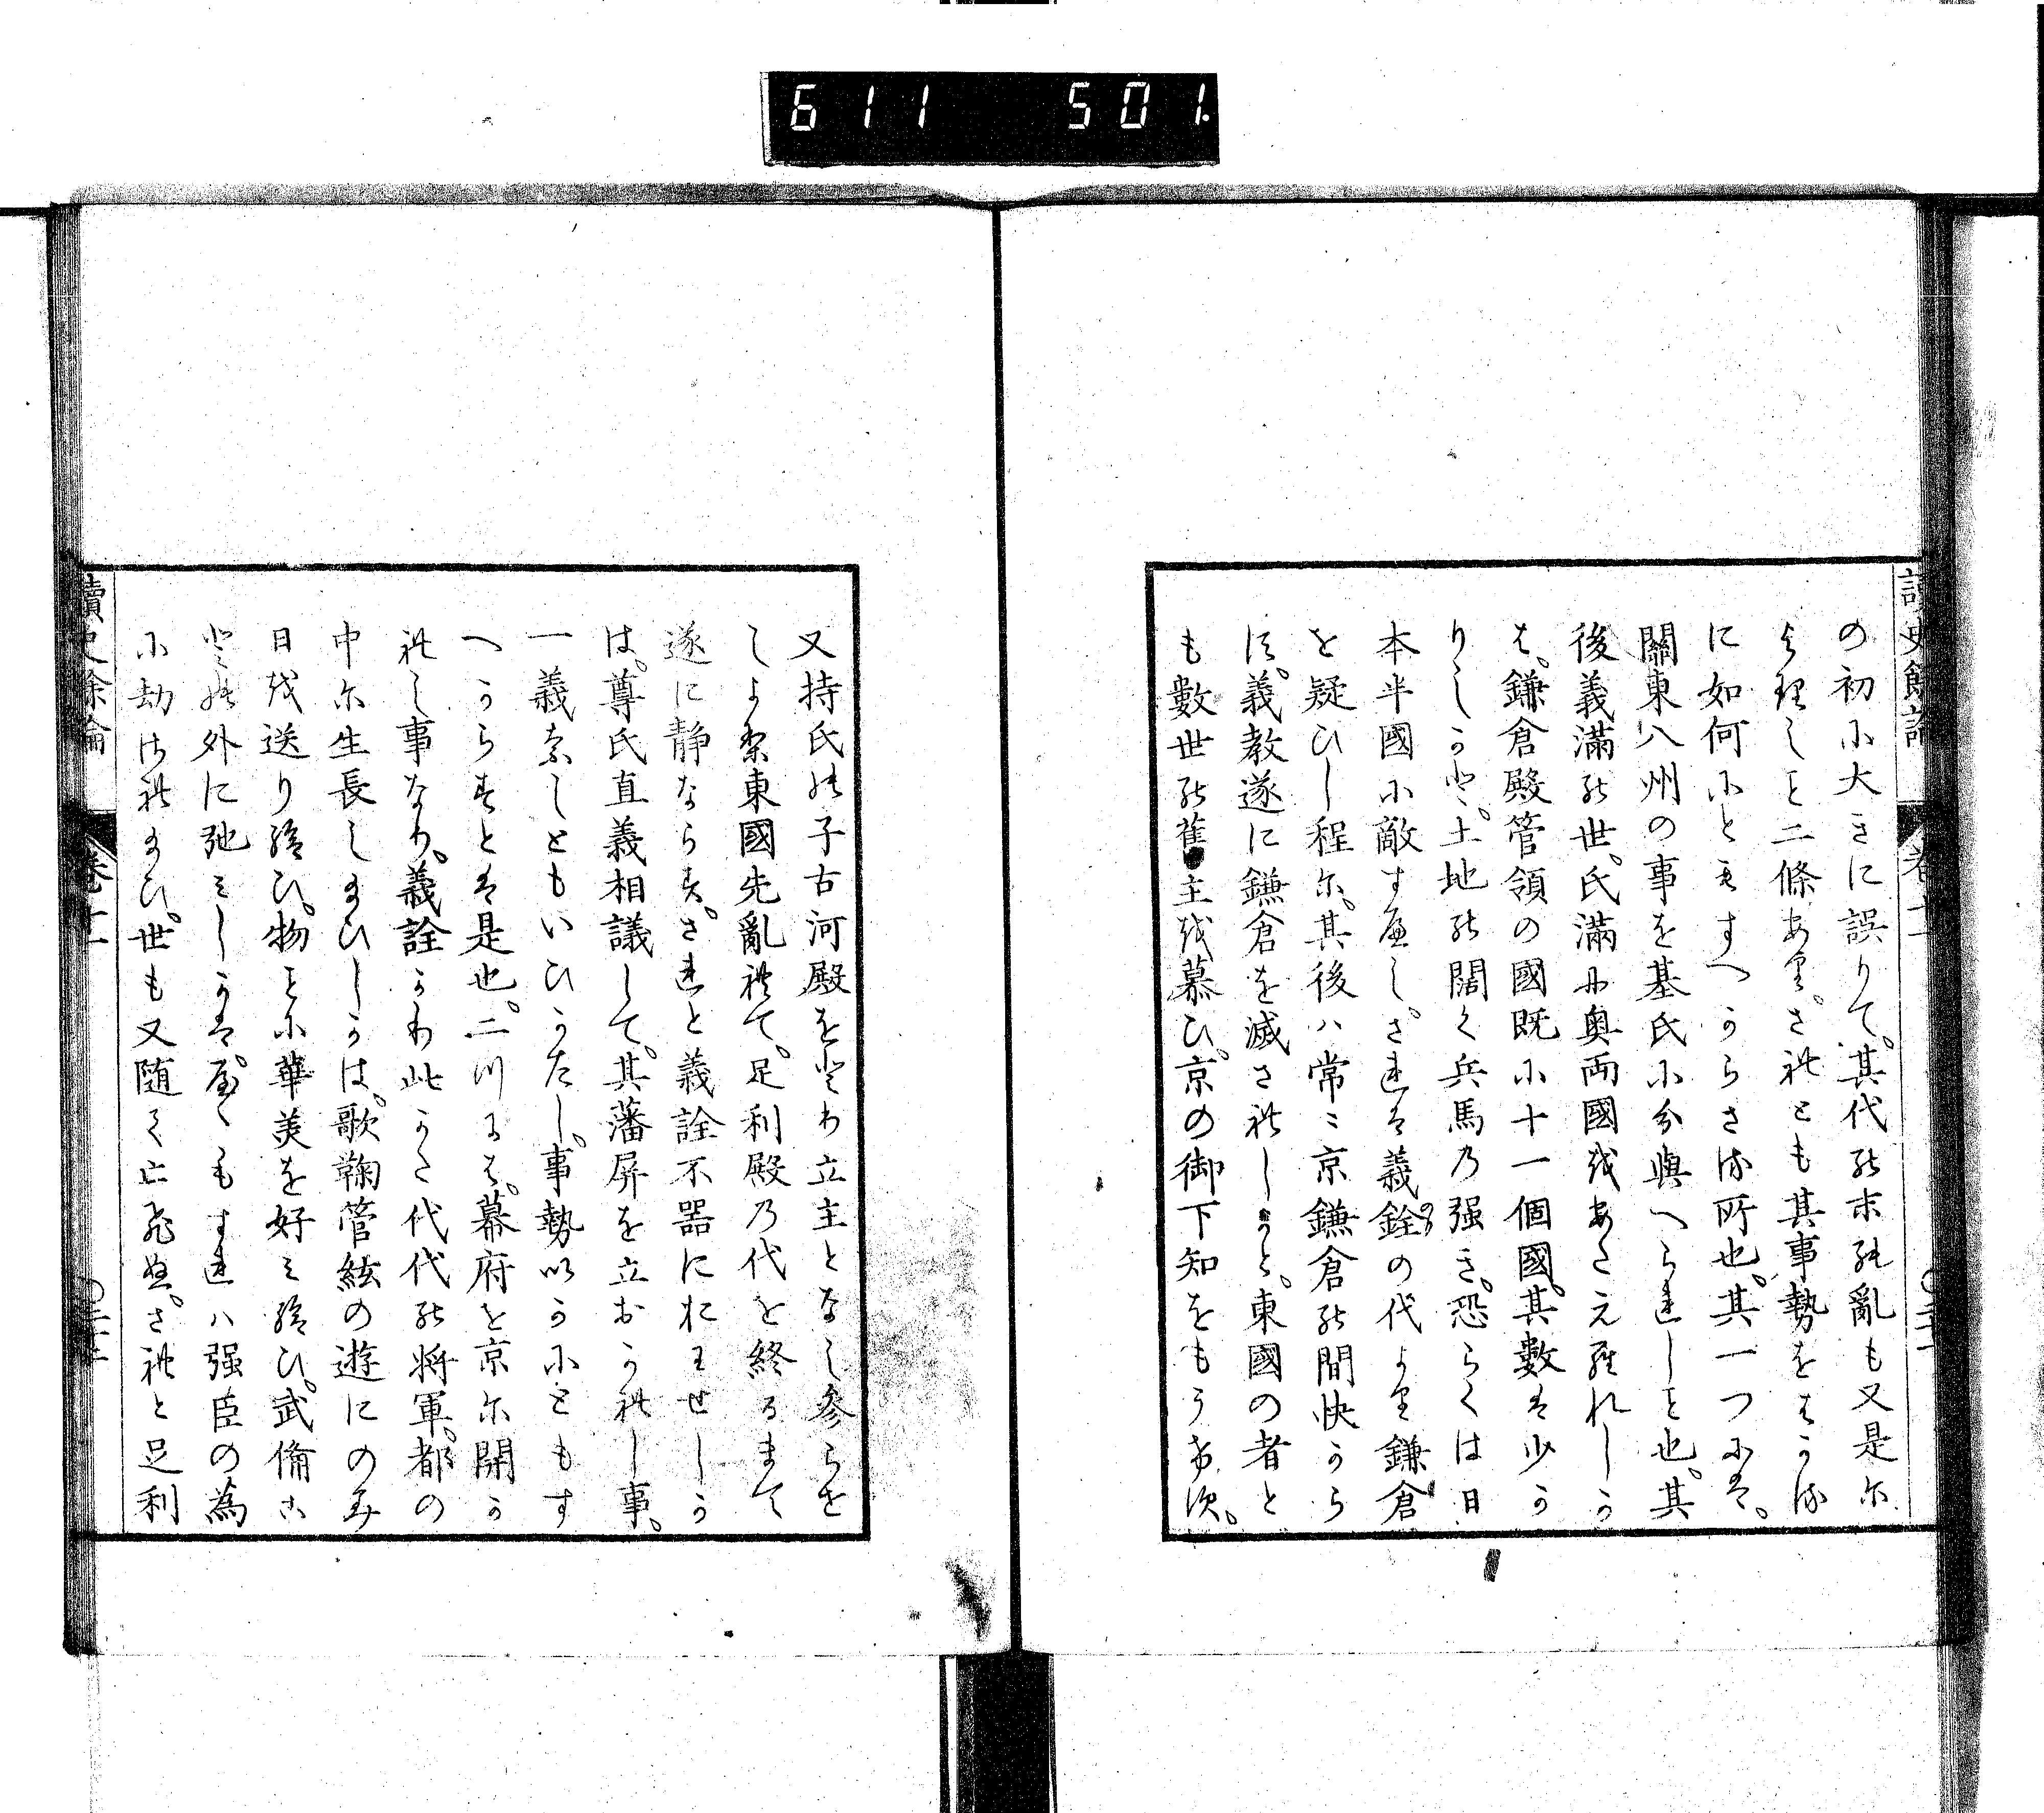 611 501.
讀史餘論 卷十一
の初に大きに誤りて。其代の末の亂も又是に
よりしこと二條あり。されとも其事勢をはかる
に如何にともすへからさる所也。其一つには。
關東八州の事を基氏に分與へられしこと也。其
後義滿の世。氏滿に奥両國をあたえられしか
は。鎌倉殿管領の國既に十一個國。其數は少か
りしかと。土地の闊く兵馬の强き。恐らくは日
本半國に敵すへし。されは義銓の代より鎌倉
を疑ひし程に。其後ハ常ニ京鎌倉の間快から
す。義教遂に鎌倉を滅されしかと。東國の者と
も數世の舊主を慕ひ。京の御下知をもうけす。
又持氏の子古河殿をとり立主となし参らせ
しより東國先亂れて。足利殿の代を終るまて
遂に静ならす。されと義詮不器におはせしか
は。尊氏直義相議して。其藩屏を立おかれし事。
一義なしともいひかたし。事勢いかにともす
へからすとは是也。二つには。幕府を京に開か
れし事なり。義詮より此かた代代の将軍。都の
中に生長したまひしかは。歌鞠管絃の遊にのみ
日を送り給ひ。物ことに華美を好み給ひ。武備こ
との外に弛みしかは。屡〻もすれハ强臣の為
に劫されたまひ。世も又随て亡ひぬ。されと足利
讀史餘論 卷十一